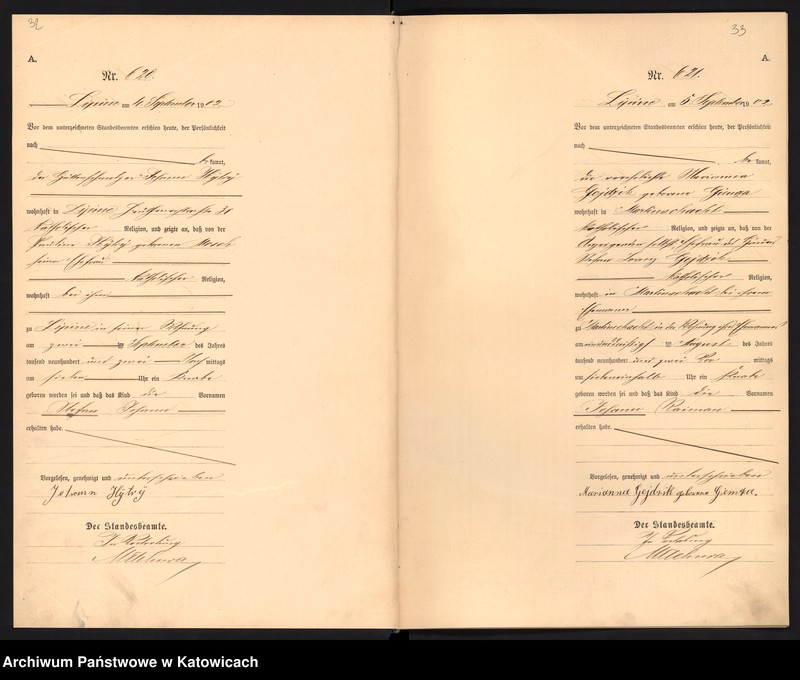 32
A.
Nr. 620.
Lipine am 4. September 1902
Vor dem unterzeichneten Standesbeamten erschien heute, der Persönlichkeit
nach
be kannt,
der Johann Hytry
wohnhaft in Lipine
katholischer Religion, und zeigte an, daß von der
Pauline Hytry geborenen
seiner Ehefrau
katholischer Religion,
wohnhaft bei ihm
zu Lipine in seiner Wohnung
am zwei ten September des Jahres
tausend neunhundert und zwei mittags
um sieben Uhr ein Knabe
geboren worden sei und daß das Kind die Vornamen
Stefan Johann
erhalten habe.
Vorgelesen, genehmigt und unterschrieben
Johann Hytrÿ
Der Standesbeamte.
In Vertretung
33
A.
Nr. 621.
Lipine am 5. September 1902
Vor dem unterzeichneten Standesbeamten erschien heute, der Persönlichkeit
nach
be kannt,
die verehelichte Marianna
Gojdzik geborene Giemza
wohnhaft in Martinschacht
katholischer Religion, und zeigte an, daß von der
Anzeigenden selbst, Ehefrau des
Gojdzik
katholischer Religion,
wohnhaft in Martinschacht bei ihrem
Ehemann
zu Martinschacht in der Wohnung ihres Ehemannes
am einunddreißig ten August des Jahres
tausend neunhundert und zwei Vor mittags
um siebeneinhalb Uhr ein Knabe
geboren worden sei und daß das Kind die Vornamen
Johann Raiman
erhalten habe.
Vorgelesen, genehmigt und unterschrieben
Marianna Gojdzik geborene Giemza.
Der Standesbeamte.
In Vertretung
Archiwum Państwowe w Katowicach